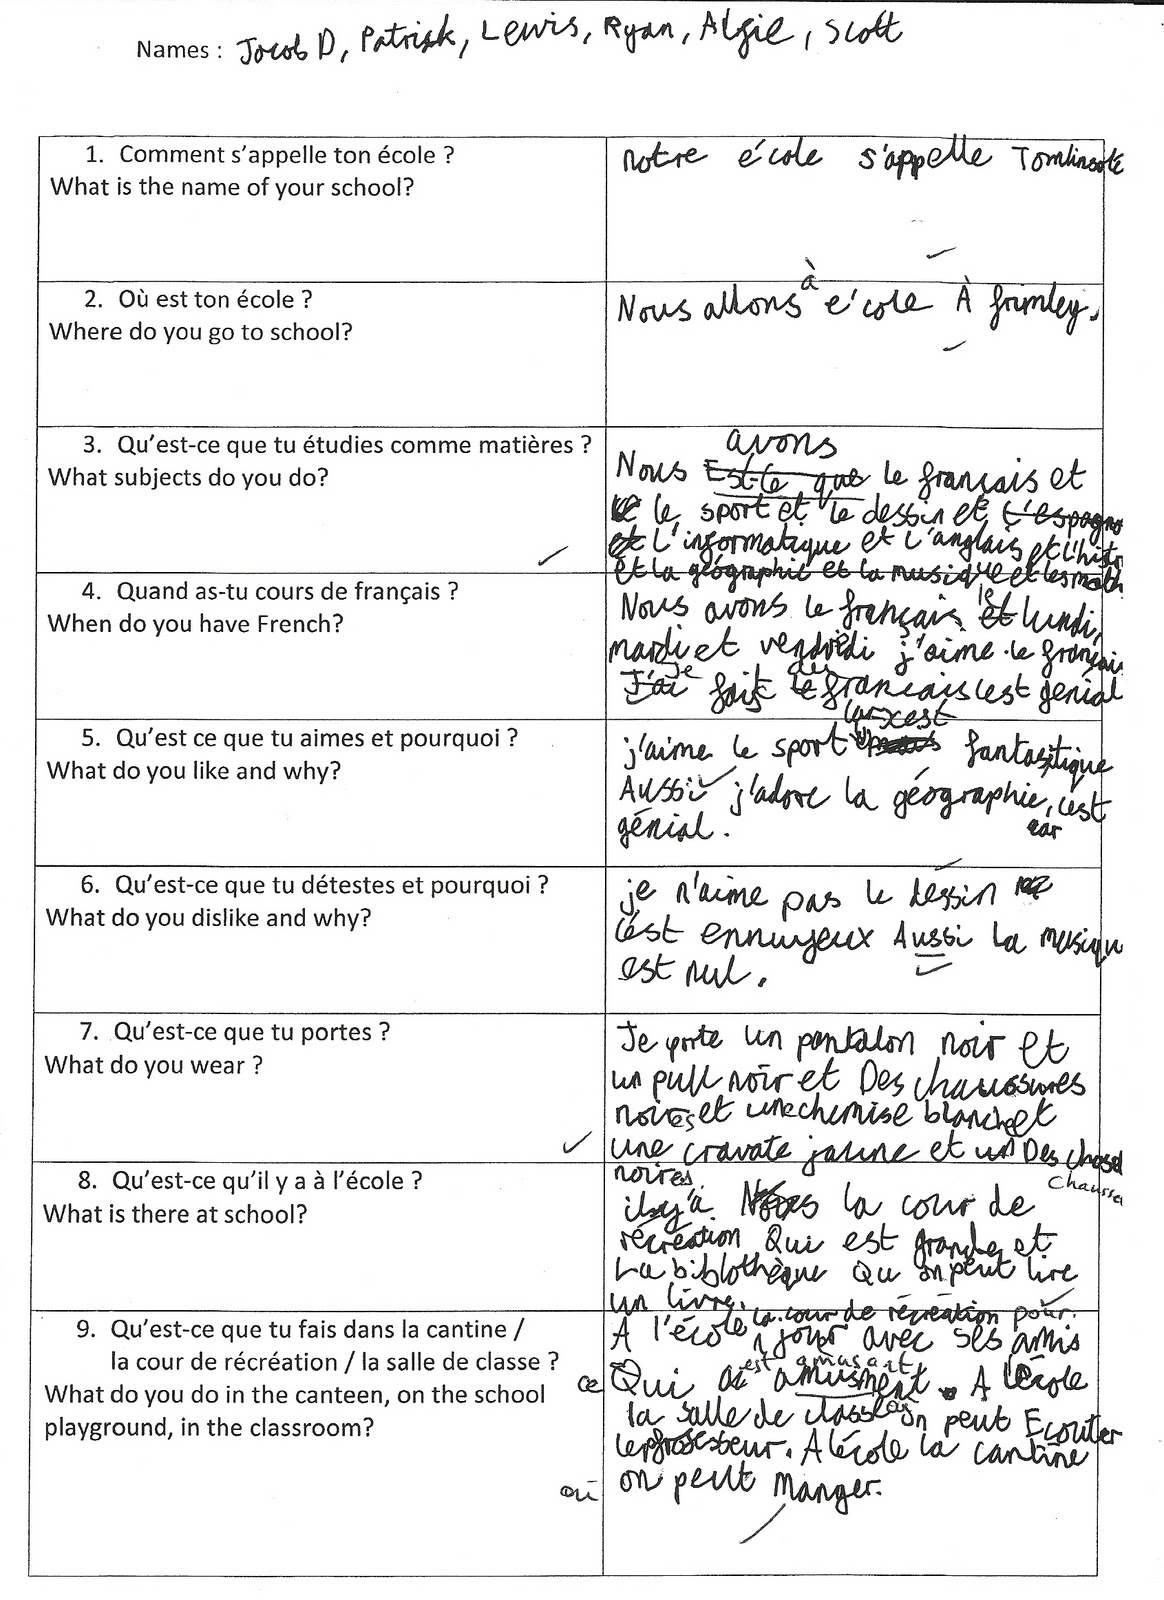 Names : Jacob D, Patrick, Lewis, Ryan, Algie, Scott
1. Comment s'appelle ton école ?
What is the name of your school?
notre école s'appelle Tomlinscote
2. Où est ton école ?
Where do you go to school?
à
Nous allons école À frimley.
3. Qu'est-ce que tu étudies comme matières ?
What subjects do you do?
avons
Nous Est-ce que le français et
le sport et le dessin et L'espagno
et L'informatique et L'anglais et L'histo
et la géographie et la musique et les math
4. Quand as-tu cours de français ?
When do you have French?
le
Nous avons le français et lundi,
mardi et vendredi j'aime le françai
Je des
J'ai fait le francais c'est genial
5. Qu'est ce que tu aimes et pourquoi ?
What do you like and why?
car c'est
j'aime le sport fantastique
Aussi j'adore la géographie, c'est
car
génial.
6. Qu'est-ce que tu détestes et pourquoi ?
What do you dislike and why?
je n'aime pas le dessin
c'est ennuyeux Aussi la musiqu
est nul.
7. Qu'est-ce que tu portes ?
What do you wear ?
Je porte un pantalon noir et
un pull noir et Des chaussures
noires et une chemise blanche et
une cravate jaune et un Des
noires.
chausse
8. Qu'est-ce qu'il y a à l'école ?
What is there at school?
il y'a la cour de
récréation Qui est grande et
La biblothèque Qu on peut lire
un livre.
9. Qu'est-ce que tu fais dans la cantine /
la cour de récréation / la salle de classe ?
What do you do in the canteen, on the school
playground, in the classroom?
la cour de récréation pour
A l'école jouer avec ses amis
est amusant
ce Qui amusment. A l'école
la salle de class on peut Ecouter
le professeur. A l'école la cantine
où on peut manger.